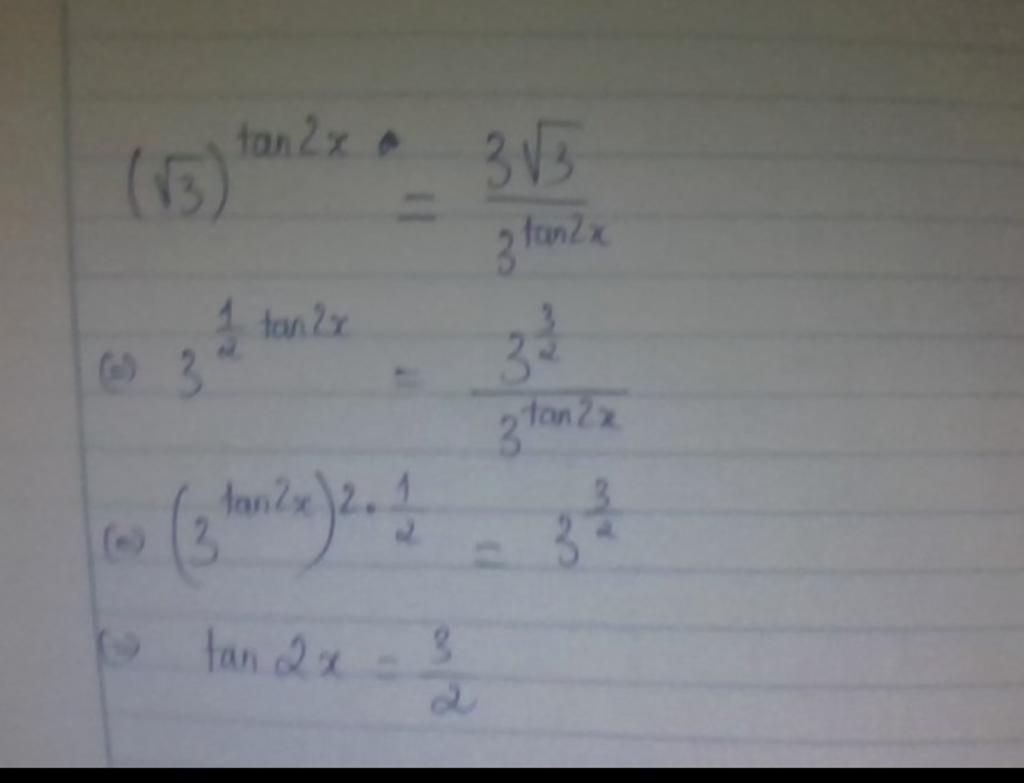 (√3)^(tan2x) • = 3√3 / 3^(tan2x)
(=) 3^(1/2 tan2x) = 3^(3/2) / 3^(tan2x)
(=) (3^(tan2x))^(2 • 1/2) = 3^(3/2)
(=) tan 2x = 3/2